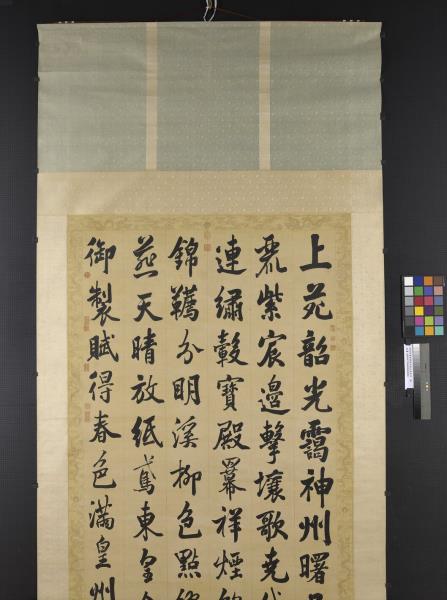 上苑韶光靄神州曙
麗紫宸邊擊壤歌堯
連繡轂寶殿羃祥煙
錦韉分明溪柳色點
燕天晴放紙鳶東皇
御製賦得春色滿皇州